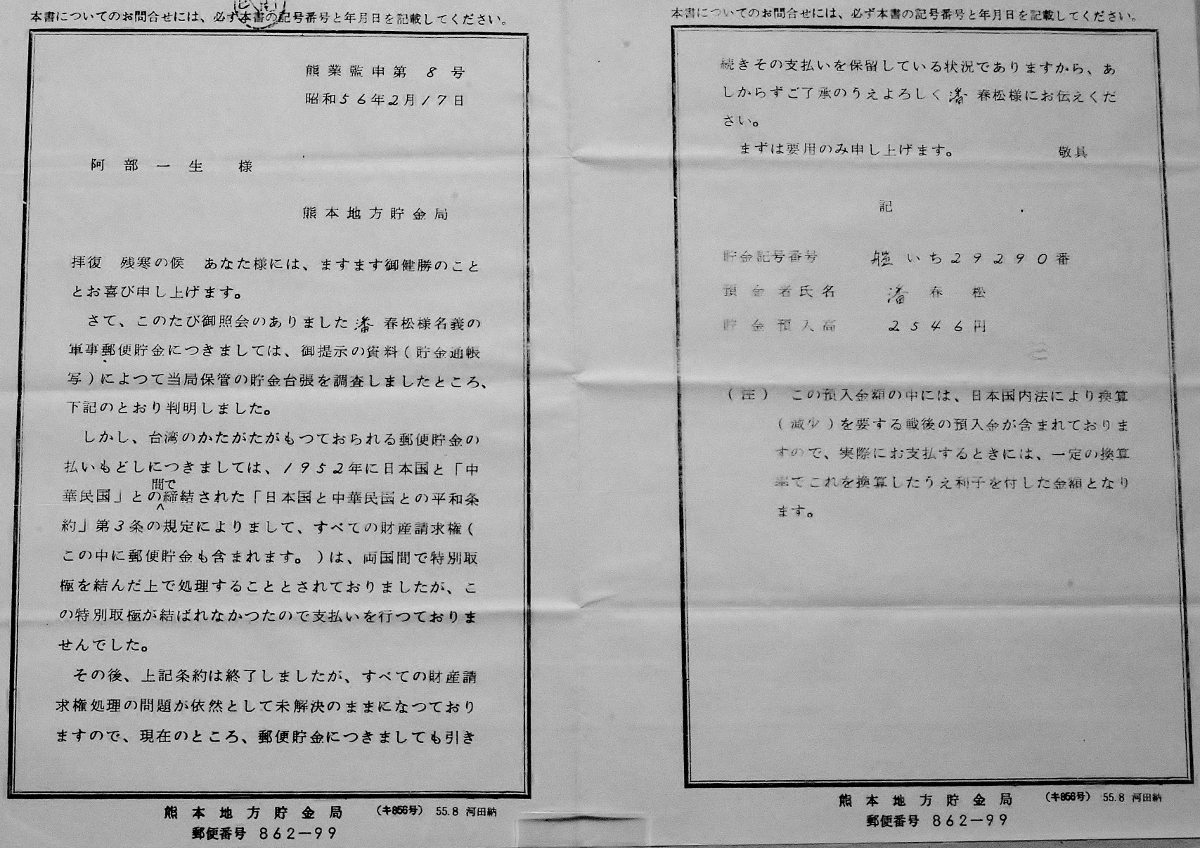 本書についてのお問合せには、必ず本書の記号番号と年月日を記載してください。
熊業監申第 8 号
昭和56年2月17日
阿部一生 様
熊本地方貯金局
拝復 残寒の候 あなた様には、ますます御健勝のこと
とお喜び申し上げます。
さて、このたび御照会のありました 潘 春松様名義の
軍事郵便貯金につきましては、御提示の資料(貯金通帳
写)によつて当局保管の貯金台張を調査しましたところ、
下記のとおり判明しました。
しかし、台湾のかたがたがもつておられる郵便貯金の
払いもどしにつきましては、1952年に日本国と「中
間で
華民国」との締結された「日本国と中華民国との平和条
約」第3条の規定によりまして、すべての財産請求権(
この中に郵便貯金も含まれます。)は、両国間で特別取
極を結んだ上で処理することとされておりましたが、こ
の特別取極が結ばれなかつたので支払いを行つておりま
せんでした。
その後、上記条約は終了しましたが、すべての財産請
求権処理の問題が依然として未解決のままになつており
ますので、現在のところ、郵便貯金につきましても引き
熊本地方貯金局 (キ856号) 55.8 河田納
郵便番号 862-99
本書についてのお問合せには、必ず本書の記号番号と年月日を記載してください。
続きその支払いを保留している状況でありますから、あ
しからずご了承のうえよろしく 潘 春松様にお伝えくだ
さい。
まずは要用のみ申し上げます。 敬具
記
貯金記号番号 艦いち29290番
預金者氏名 潘 春松
貯金預入高 2546円
(注) この預入金額の中には、日本国内法により換算
(減少)を要する戦後の預入金が含まれておりま
すので、実際にお支払するときには、一定の換算
率でこれを換算したうえ利子を付した金額となり
ます。
熊本地方貯金局 (キ856号) 55.8 河田納
郵便番号 862-99